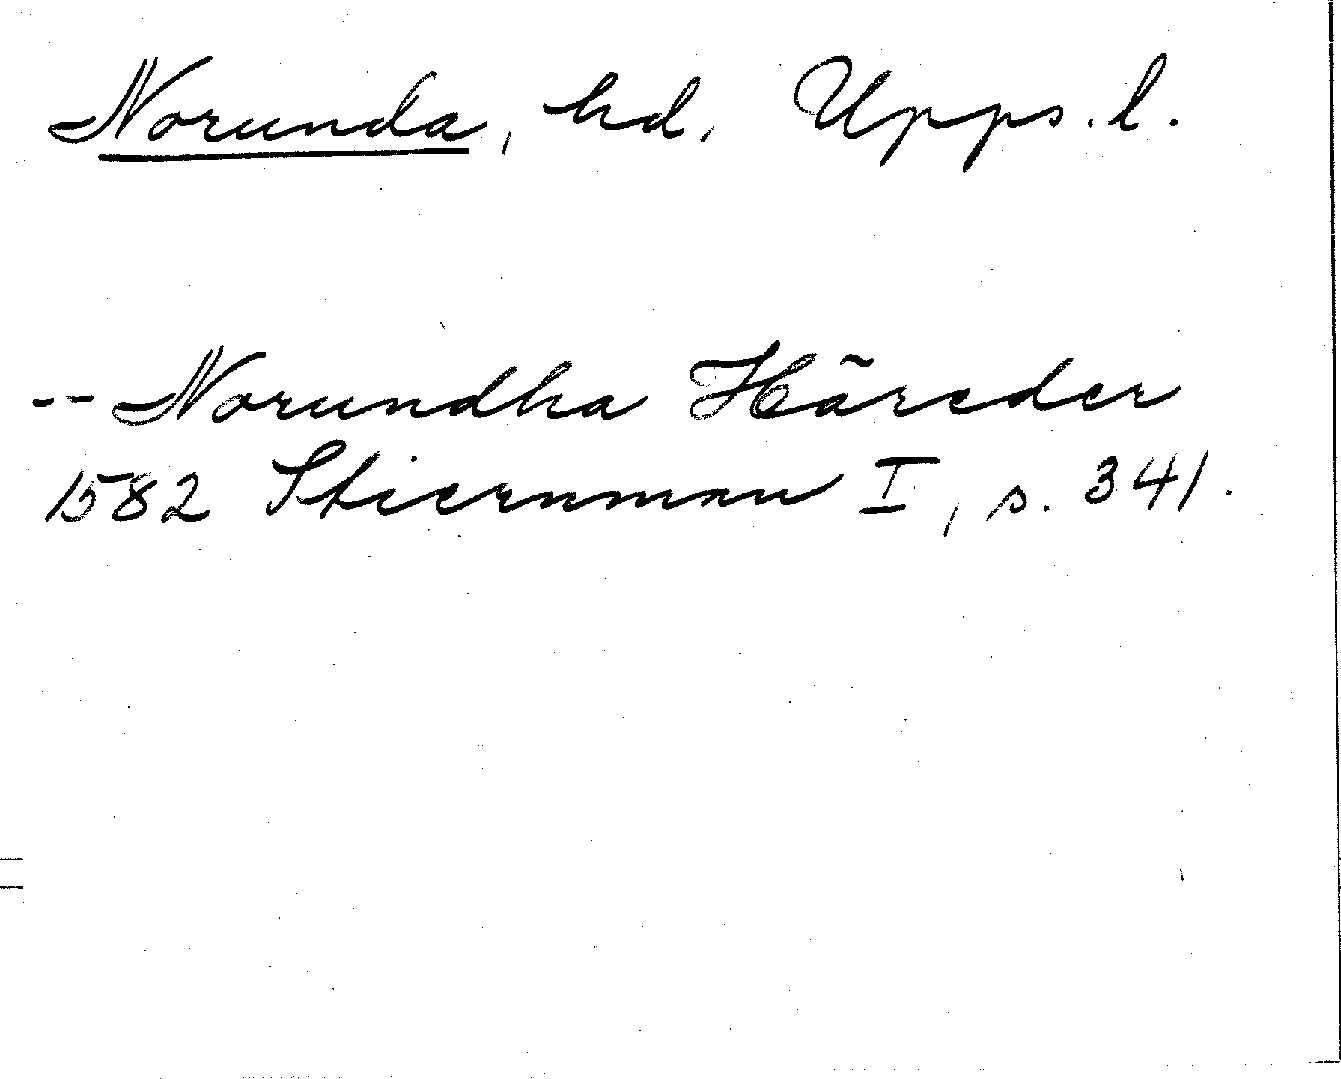 Norunda, hd. Upps. l.
-- Norundha Häreder
1582 Stiernman I, s. 341.